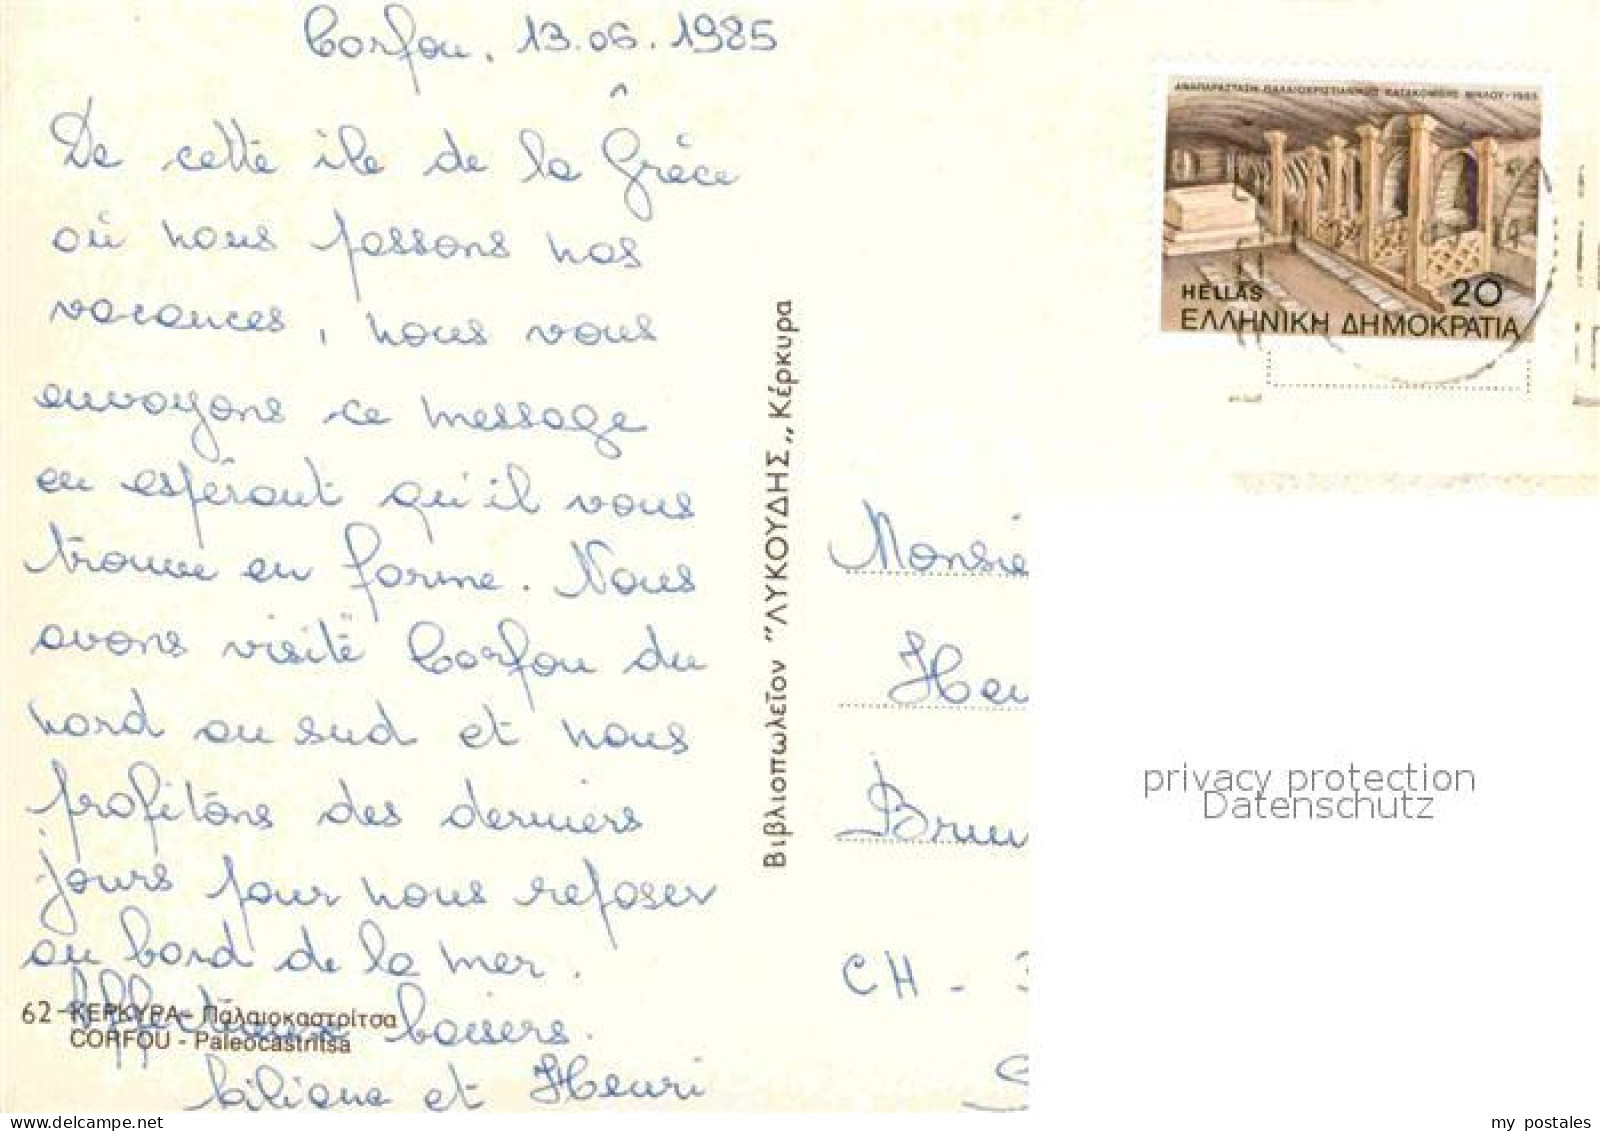 Corfou. 13.06.1985
De cette île de la Grèce
où nous passons nos
vacances, nous vous
envoyons ce message
en espérant qu'il vous
trouve en forme. Nous
avons visité Corfou du
nord au sud et nous
profitons des derniers
jours pour nous reposer
au bord de la mer.
Affectueux baisers.
Liliane et Henri
62 - ΚΕΡΚΥΡΑ - Παλαιοκαστρίτσα
CORFOU - Paleocastritsa
Βιβλιοπωλεῖον "ΛΥΚΟΥΔΗΣ,, Κέρκυρα
ΑΝΑΠΑΡΑΣΤΑΣΗ ΠΑΛΑΙΟΧΡΙΣΤΙΑΝΙΚΗΣ ΚΑΤΑΚΟΜΒΗΣ ΜΗΛΟΥ · 1985
HELLAS 20
ΕΛΛΗΝΙΚΗ ΔΗΜΟΚΡΑΤΙΑ
Monsie
Hen
Brun
CH -
privacy protection
Datenschutz
my postales